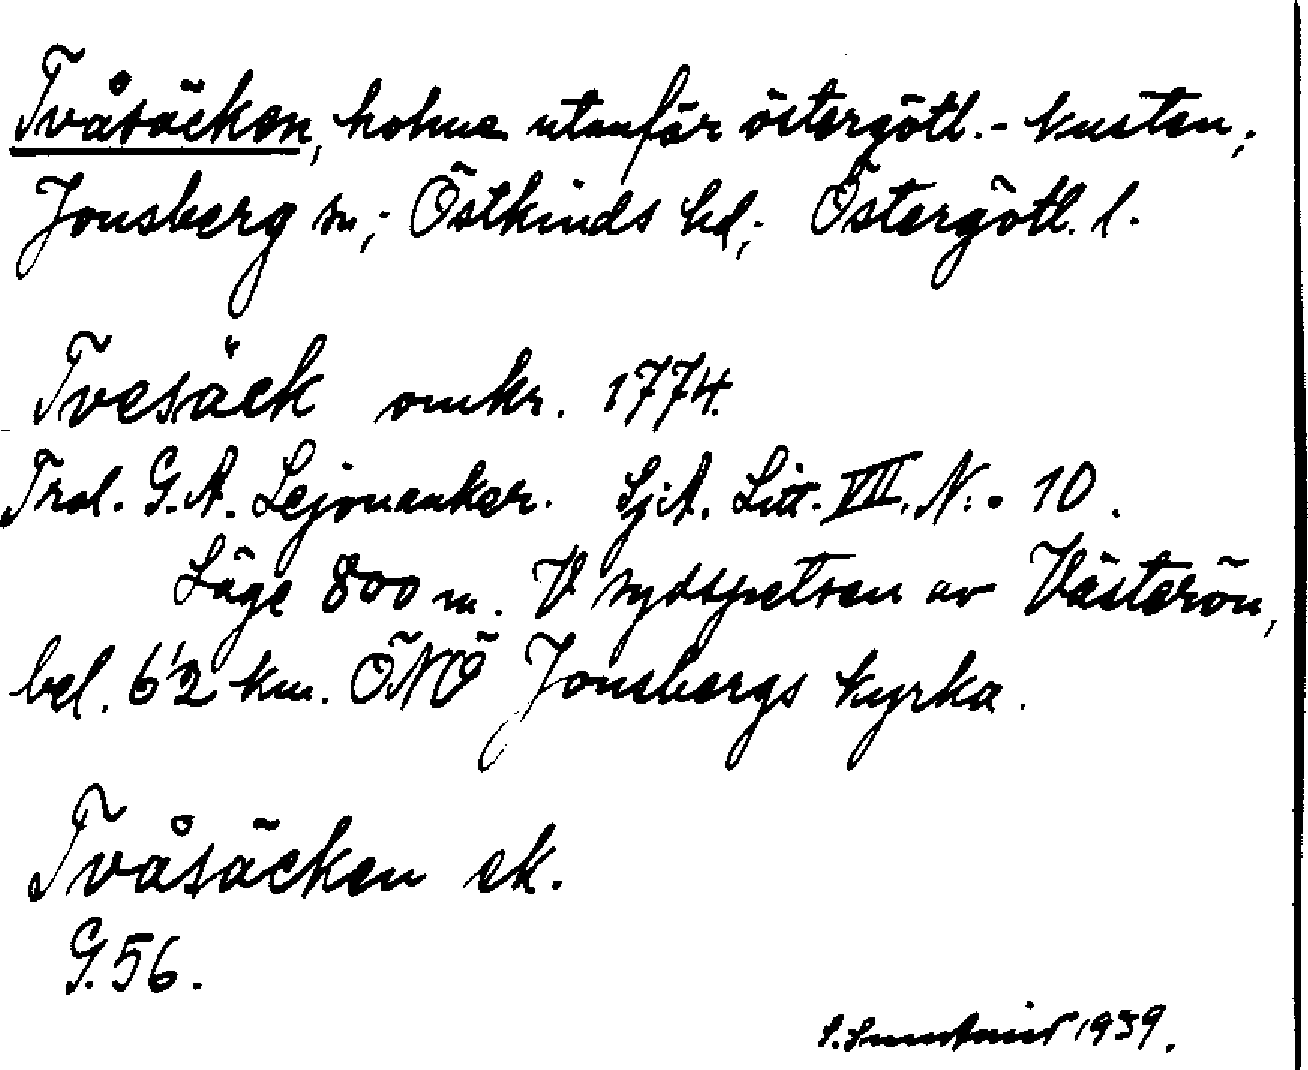 Tvåsäcken, holme utanför östergötl.-kusten;
Jonsberg sn; Östkinds hd; Östergötl. l.
Tvesäck omkr. 1774.
Trol. G.A. Lejonanker. Sj.A. Litt. VIII. N:o 10.
Läge 800 m. V sydspetsen av Västerön,
bel. 6 1/2 km. ÖNÖ Jonsbergs kyrka.
Tvåsäcken ek.
G.56.
1939.